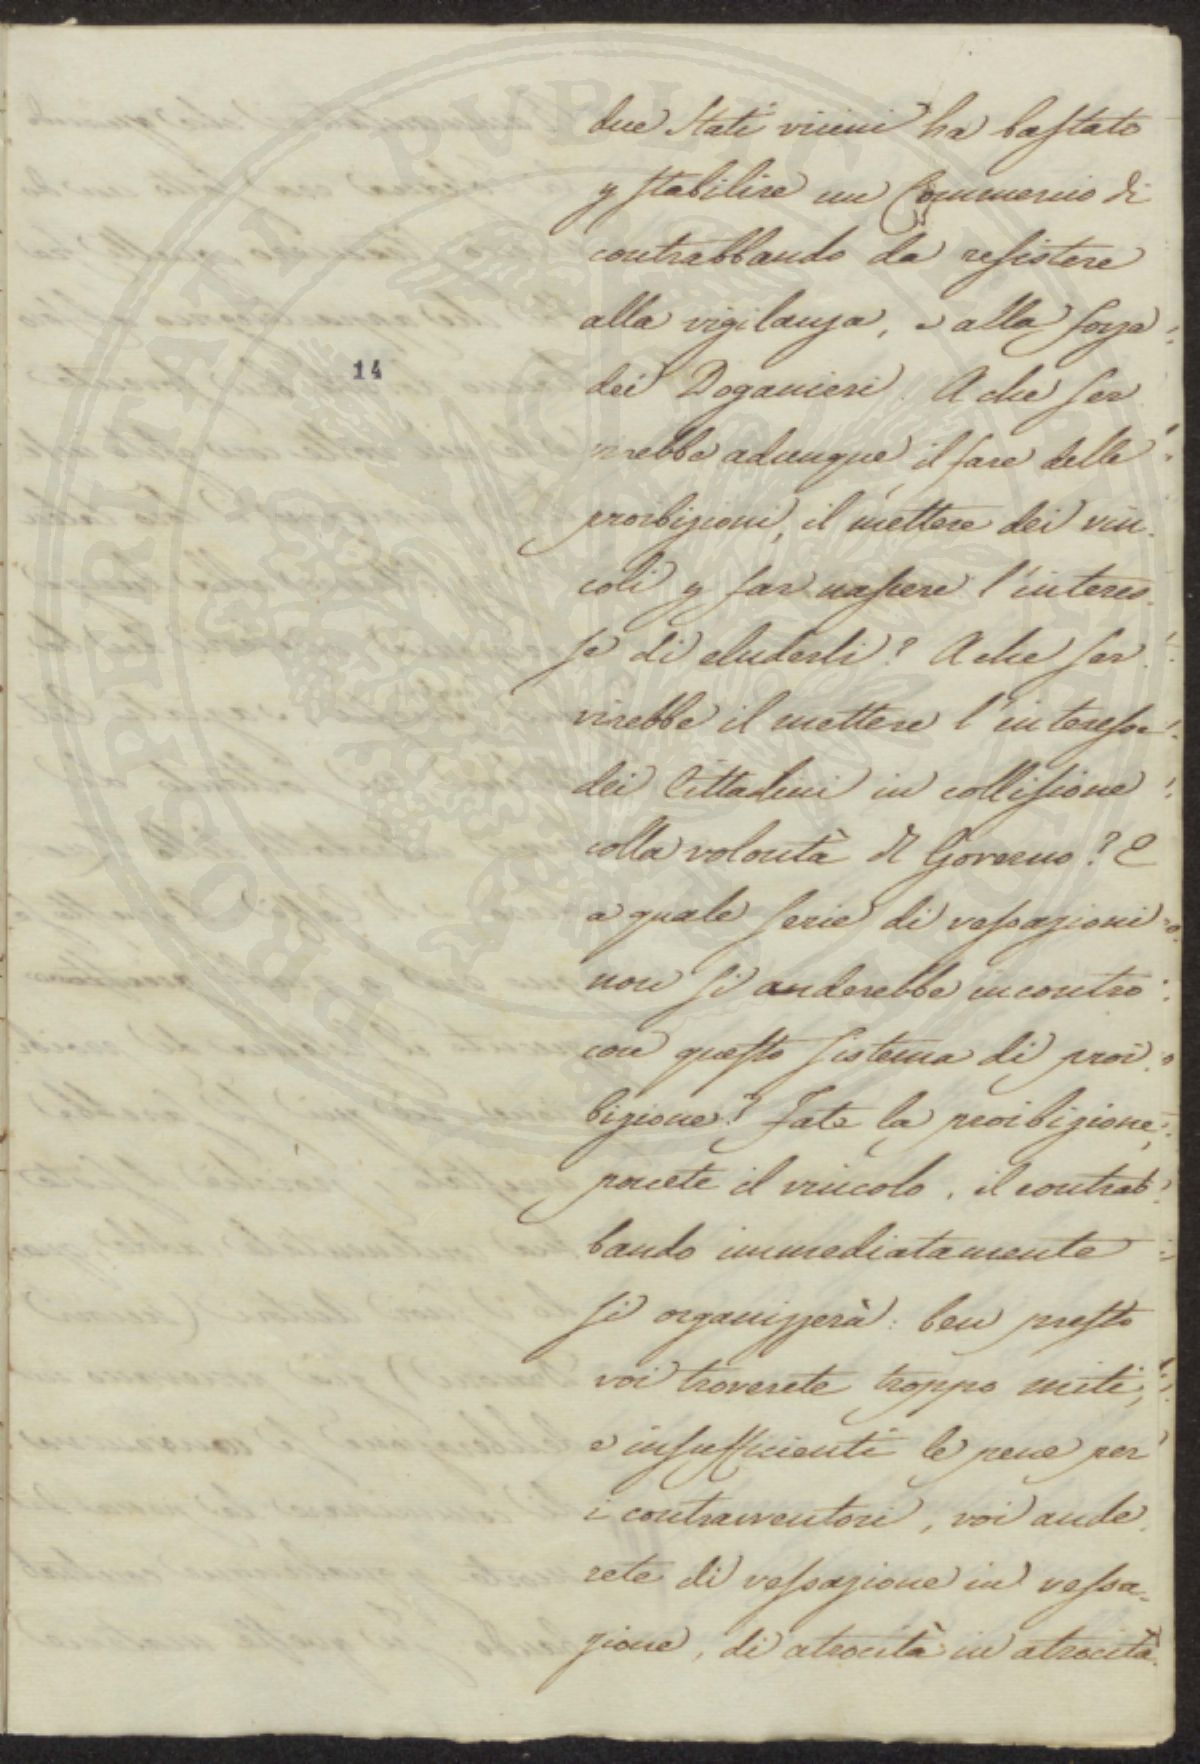 due Stati vicini ha bastato
p stabilire un Commercio di
contrabbando da resistere
alla vigilanza, e alla forza
14
dei Doganieri. A che ser
virebbe adunque il fare delle
proibizioni, il mettere dei vin-
coli p far nascere l'interes-
se di eluderli? A che ser-
virebbe il mettere l'interesse
dei Cittadini in collisione
colla volontà dl Governo? E
a quale serie di vessazioni
non si anderebbe incontro
con questo sistema di proi-
bizione? Fate la proibizione,
ponete il vincolo, il contrab
bando immediatamente
si organizzerà: ben presto
voi troverete troppo miti,
e insufficienti le pene per
i contravventori, voi ande-
rete di vessazione in vessa-
zione, di atrocità in atrocità.
PROSPERITATI PUBLICAE